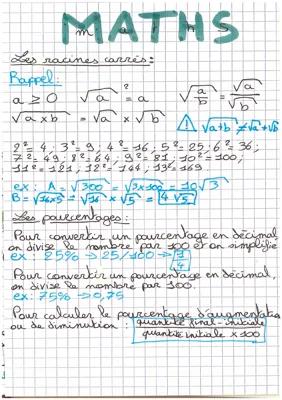 MATHS
Les racines carrés :
Rappel :
a ≥ 0 √a² = a √a/b = √a/√b
√a x b = √a x √b ⚠ √a+b ≠ √a + √b
2² = 4 ; 3² = 9 ; 4² = 16 ; 5² = 25 ; 6² = 36 ;
7² = 49 ; 8² = 64 ; 9² = 81 ; 10² = 100 ;
11² = 121 ; 12² = 144 ; 13² = 169
ex : A = √300 = √3x100 = 10√3
B = √16x5 = √16 x √5 = 4√5
Les pourcentages :
Pour convertir un pourcentage en décimal
on divise le nombre par 100 et on simplifie
ex : 25% → 25/100 → 1/4
Pour convertir un pourcentage en décimal,
on divise le nombre par 100.
ex : 75% → 0,75
Pour calculer le pourcentage d'augmentation
ou de diminution : quantité final - initiale
quantité initiale x 100